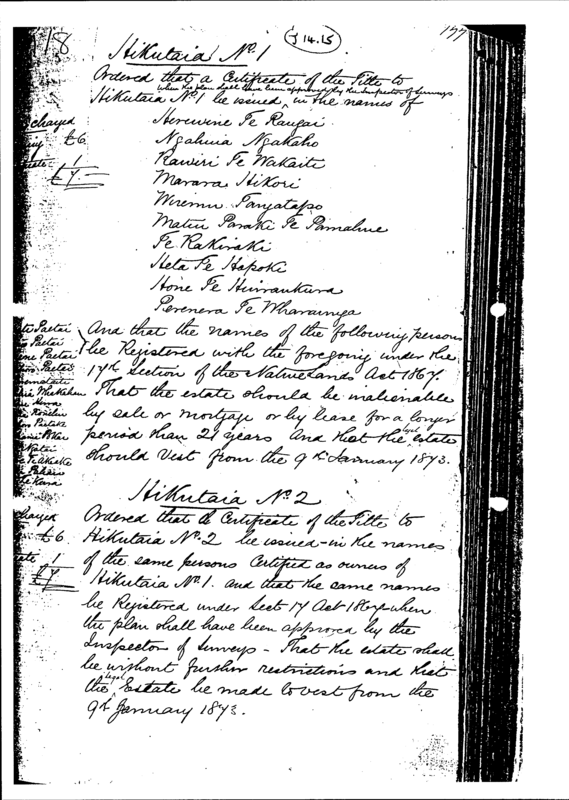 18
J 14.15
177
Hikutaia No. 1
Ordered that a Certificate of the Title to
when the plan shall have been approved by the Inspector of Surveys
Hikutaia No. 1 be issued in the names of
Hereurine Te Rangai
charged
Ngahuia Ngakaho
£6
Rawiri Te Wakaiti
1
£7
Marara Hikori
Wiremu Tangatapo
Matiu Paraki Te Pamahue
Te Kakiraki
Heta Te Hapoki
Hone Te Huirankura
Perenera Te Wharaunga
And that the names of the following persons
be Registered with the foregoing under the
17th section of the Native Lands Act 1867.
That the estate should be inalienable
by sale or mortgage or by lease for a longer
period than 21 years And that the legal estate
should vest from the 9th January 1873.
Paetai
Paetai
Paetai
Paetai
Hikutaia No. 2
charged
Ordered that a Certificate of the Title to
£6
Hikutaia No. 2 be issued in the names
1
of the same persons Certified as owners of
£7
Hikutaia No. 1. and that the same names
be Registered under Sect 17 Act 1867 when
the plan shall have been approved by the
Inspector of Surveys - That the estate shall
be without further restrictions and that
the legal Estate be made to vest from the
9th January 1873.